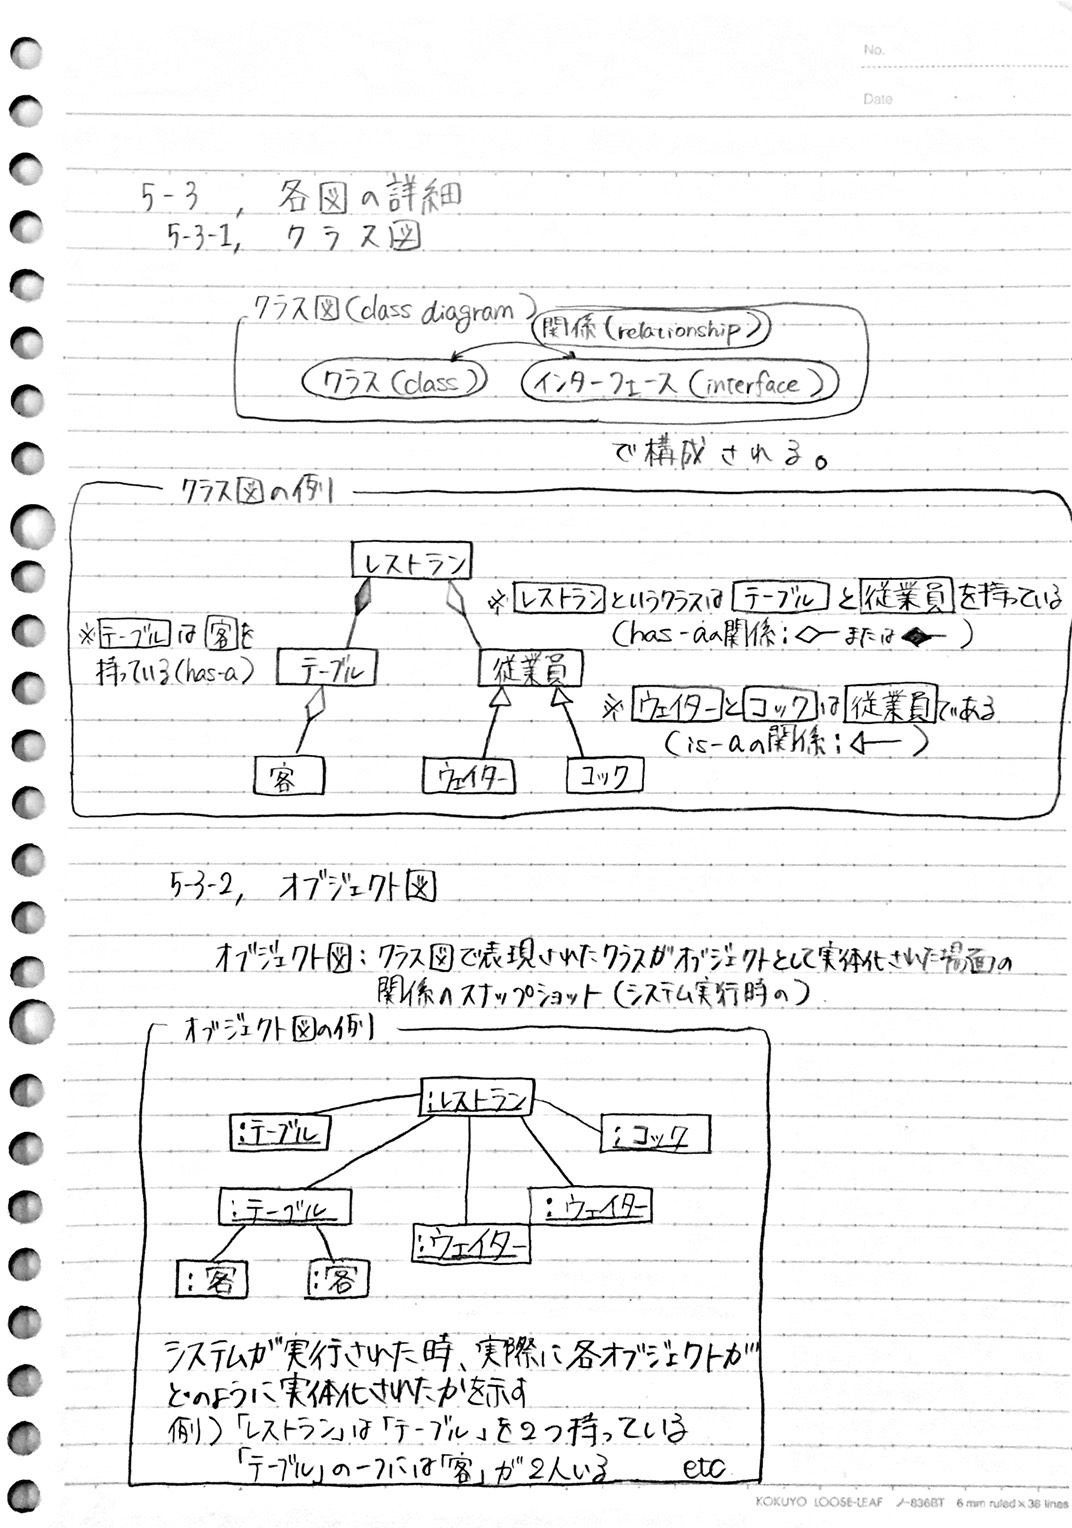 No.
Date
5-3, 各図の詳細
5-3-1, クラス図
クラス図(class diagram)
関係(relationship)
クラス(class) インターフェース(interface)
で構成される。
クラス図の例
レストラン
※レストランというクラスはテーブルと従業員を持っている
(has-aの関係:◇─または◆─)
※テーブルは客を
持っている(has-a)
テーブル 従業員
※ウェイターとコックは従業員である
(is-aの関係:◁─)
客 ウェイター コック
5-3-2, オブジェクト図
オブジェクト図:クラス図で表現されたクラスがオブジェクトとして実体化された場面の
関係のスナップショット(システム実行時の)
オブジェクト図の例
:レストラン
:テーブル :コック
:テーブル :ウェイター
:ウェイター
:客 :客
システムが実行された時、実際に各オブジェクトが
どのように実体化されたかを示す
例)「レストラン」は「テーブル」を2つ持っている
「テーブル」の一つには「客」が2人いる etc
KOKUYO LOOSE-LEAF ノ-836BT 6 mm ruled×36 lines